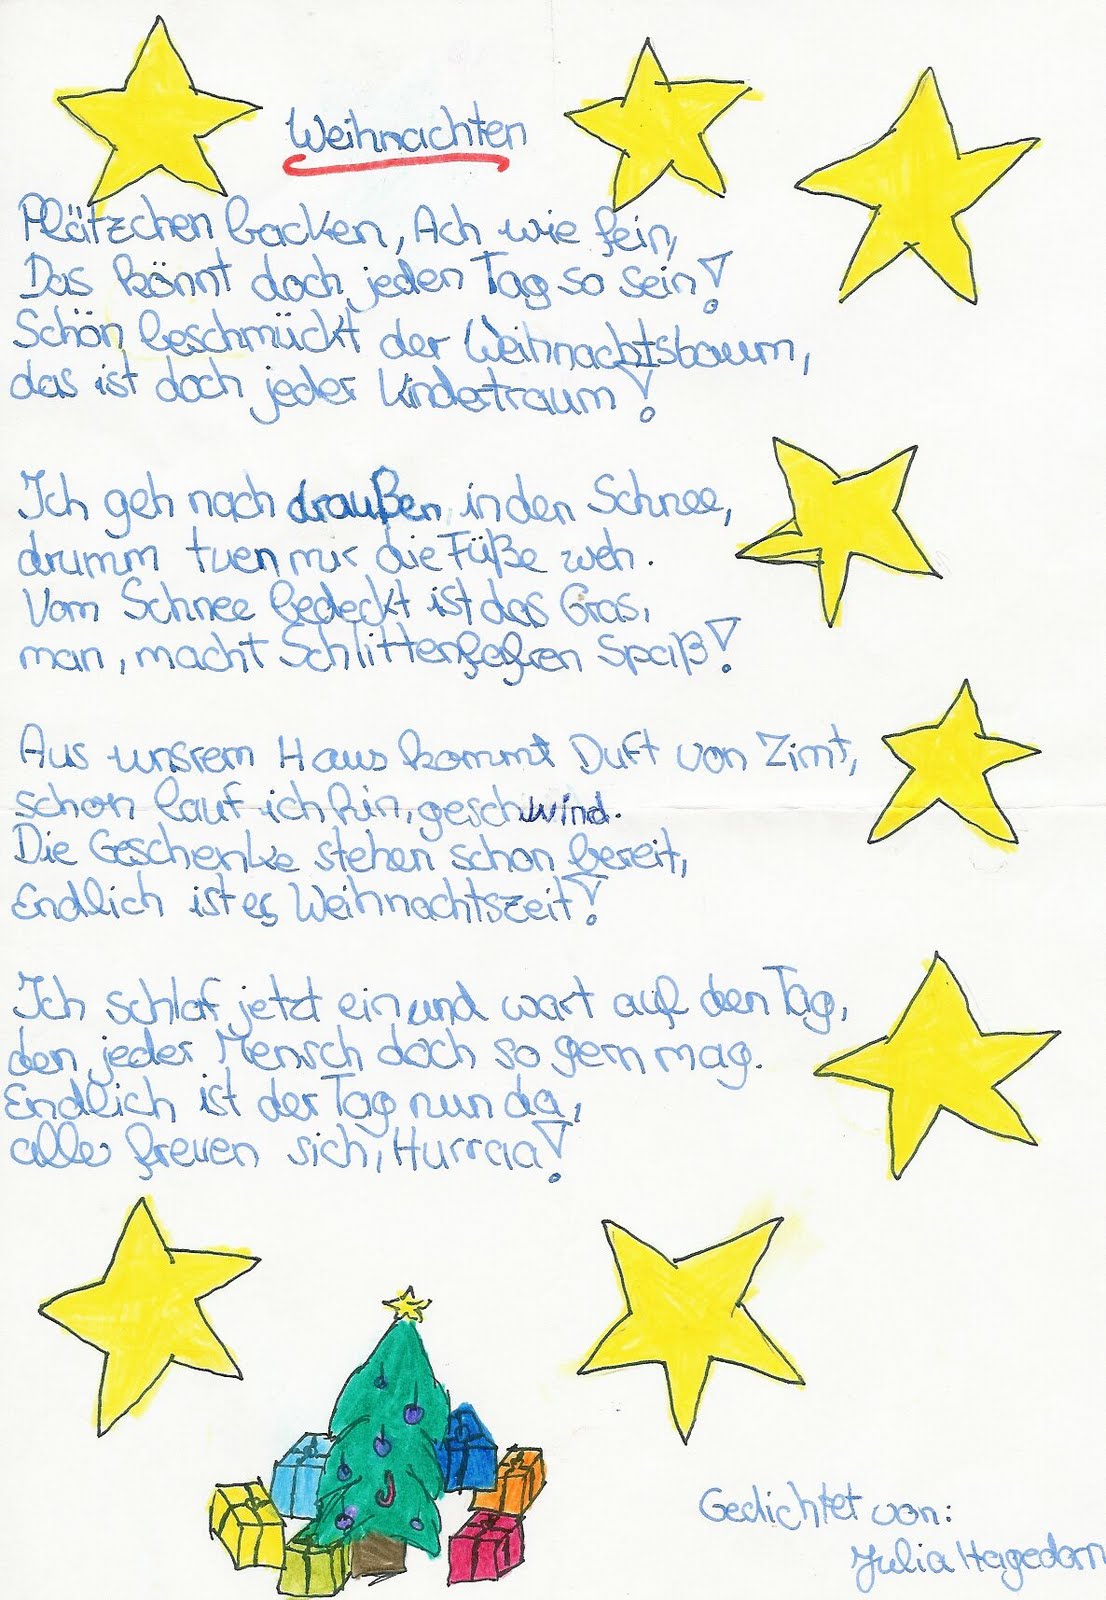 Weihnachten
Plätzchen backen, Ach wie fein,
Das könnt doch jeden Tag so sein!
Schön beschmückt der Weihnachtsbaum,
das ist doch jeder Kindertraum!
Ich geh nach draußen, in den Schnee,
drumm tuen mir die Füße weh.
Vom Schnee bedeckt ist das Gras,
man, macht Schlittenfahren Spaß!
Aus unsrem Haus kommt Duft von Zimt,
schon lauf ich hin, geschwind.
Die Geschenke stehen schon bereit,
Endlich ist es Weihnachtszeit!
Ich schlaf jetzt ein und wart auf den Tag,
den jeder Mensch doch so gern mag.
Endlich ist der Tag nun da,
alle freuen sich, Hurraa!
Gedichtet von:
Julia Hagedorn